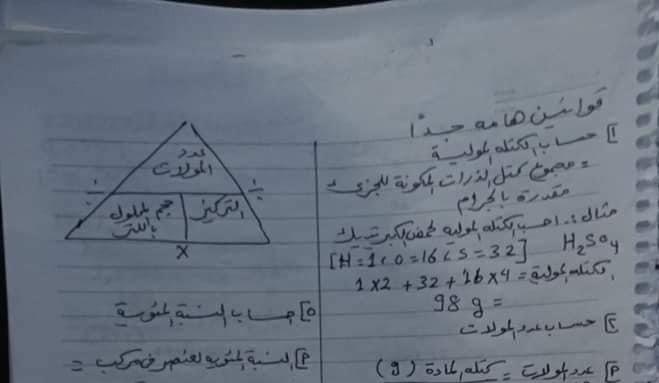 قوانين هامه جداً
1] حساب الكتله المولية
= مجموع كتل الذرات المكونة للجزئ
مقدرة بالجرام
مثال :- احسب الكتله المولية لحمض الكبريتيك
H₂SO₄ [H=1, O=16, S=32]
الكتله المولية = 1×2 + 32 + 16×4
= 98 g
2] حساب عدد المولات
P] عدد المولات = كتله المادة (g)
عدد
المولات
÷ ÷
التركيز
حجم المحلول
باللتر
X
5] حساب النسبة المئوية
P] النسبة المئويه لعنصر فى مركب =